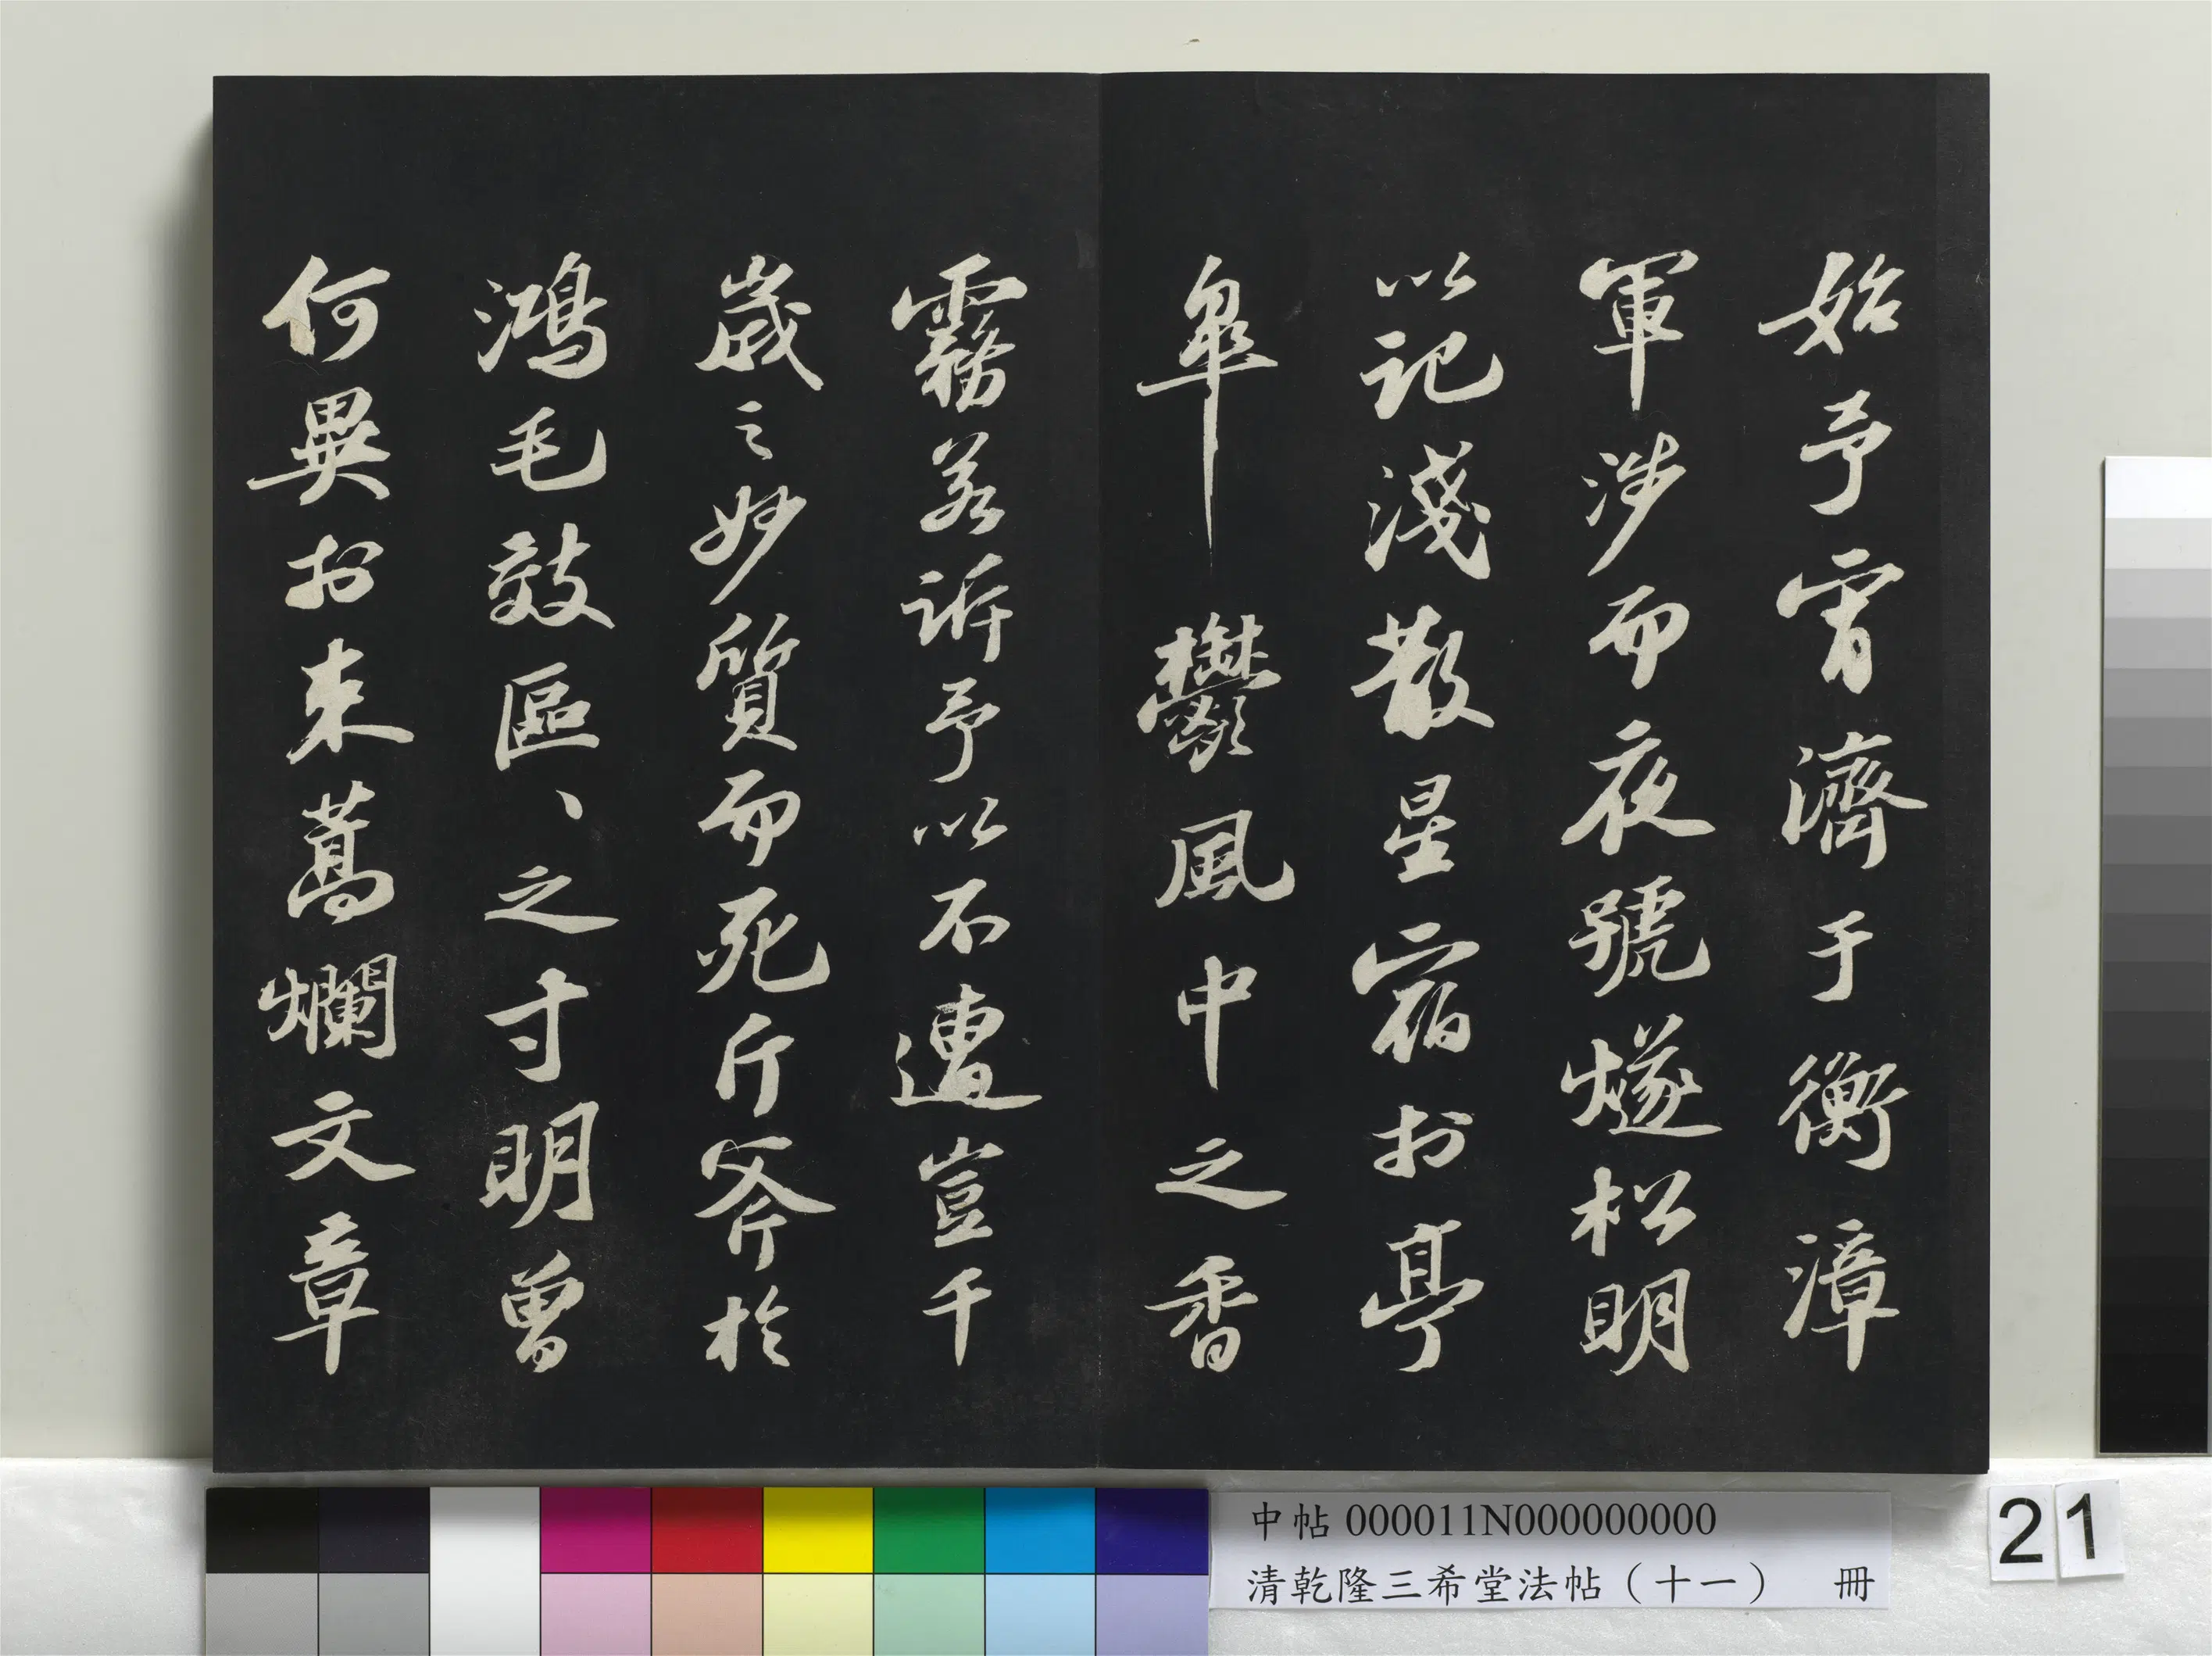 始予宵濟于衡漳
軍涉而夜號燧松明
以記淺散星宿於亭
皐鬱風中之香
霧若訴予以不遭豈千
歲之妙質而死斤斧於
鴻毛效區、之寸明曾
何異於束蒿爛文章
中帖 000011N000000000
清乾隆三希堂法帖（十一） 冊
21